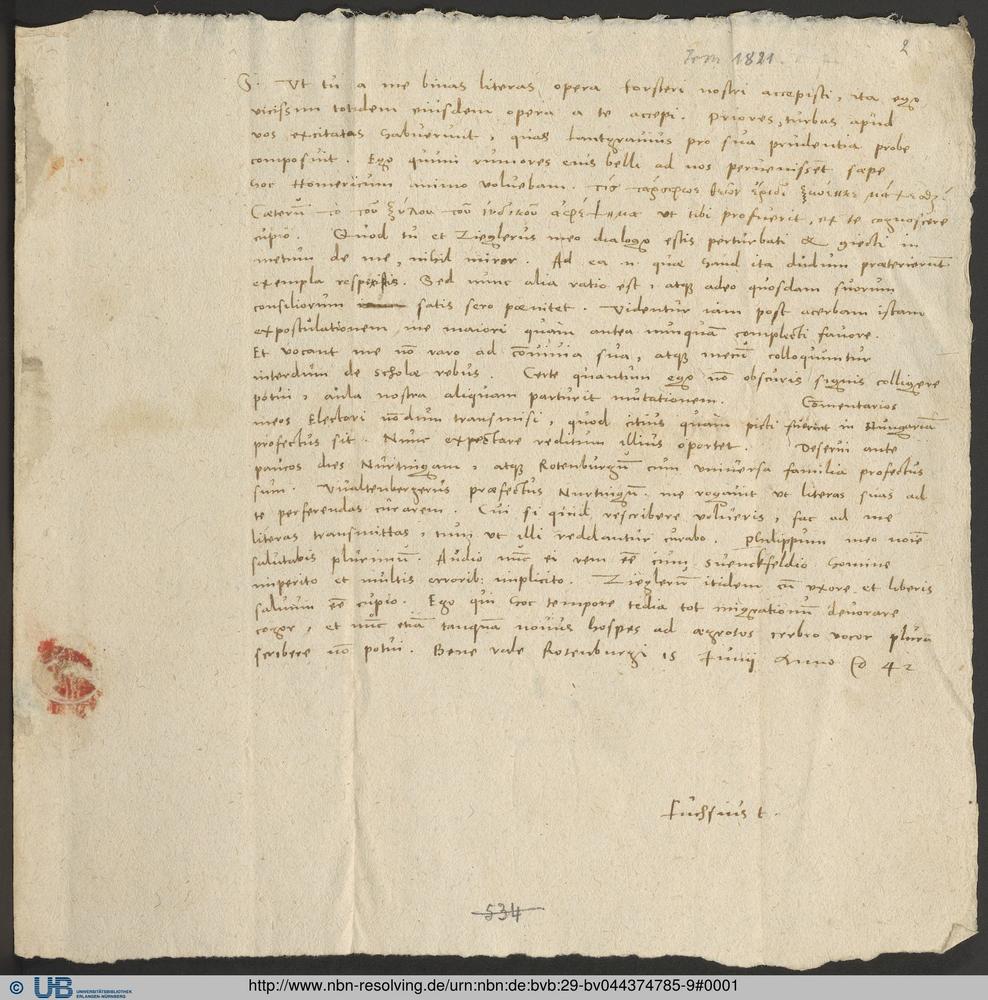 2
1821.
S. Ut tu a me binas literas opera forsteri nostri accepisti, ita ego
vicissim totidem eiusdem opera a te accepi. Priores, turbas apud
vos excitatas habuerunt, quas Lantgravius pro sua prudentia probe
composuit. Ego quum rumores eius belli ad nos pervenissent sæpe
hoc Homericum animo volvebam. τίς τ' ἄρ σφωε θεῶν ἔριδι ξυνέηκε μάχεσθαι
Cæterū τὸ τοῦ ξύλου τοῦ ἰνδικοῦ ut tibi profuerit, ex te cognoscere
cupio. Quod tu et Zieglerus meo dialogo estis perturbati & giecti in
metum de me, nihil miror. Ad ea n. quæ haud ita dudum præterierunt
exempla respexistis. Sed nunc alia ratio est, atqꝫ adeo quosdam suorum
consiliorum satis sero pœnitet. Videntur iam post acerbam istam
expostulationem me maiori quam antea nunquā complecti favore.
Et vocant me nō raro ad cōvivia sua, atqꝫ mecū colloquuntur
interdum de scholæ rebus. Certe quantum ego nō obscuris signis colligere
potui, aula nostra aliquam parturit mutationem. Cōmentarios
meos Electori nōdum transmisi, quod citius quam picti fuerint in Hungariā
profectus sit. Nunc expectare reditum illius oportet. Deserui ante
paucos dies Nurtingam, atqꝫ Rotenburgū cum universa familia profectus
sum. Vualtenbergerus præfectus Nurtingn. me rogavit ut literas suas ad
te perferendas curarem. Cui si quid rescribere volueris, fac ad me
literas transmittas, tum ut illi reddantur curabo. Philippum meo noīe
salutabis plurimū. Audio nūc ei rem eē cum Suenckfeldio homine
imperito et multis errorib: implicito. Zieglerū itidem cū uxore et liberis
salvum eē cupio. Ego qui hoc tempore tedia tot migrationū devorare
cogor, et nūc etiā tanquā novus hospes ad ægrotos crebro vocor plura
scribere nō potui. Bene vale Rotenburgi 15 Junij Anno 42
Fuchsius t.
534
© UB UNIVERSITÄTSBIBLIOTHEK
ERLANGEN-NÜRNBERG
http://www.nbn-resolving.de/urn:nbn:de:bvb:29-bv044374785-9#0001